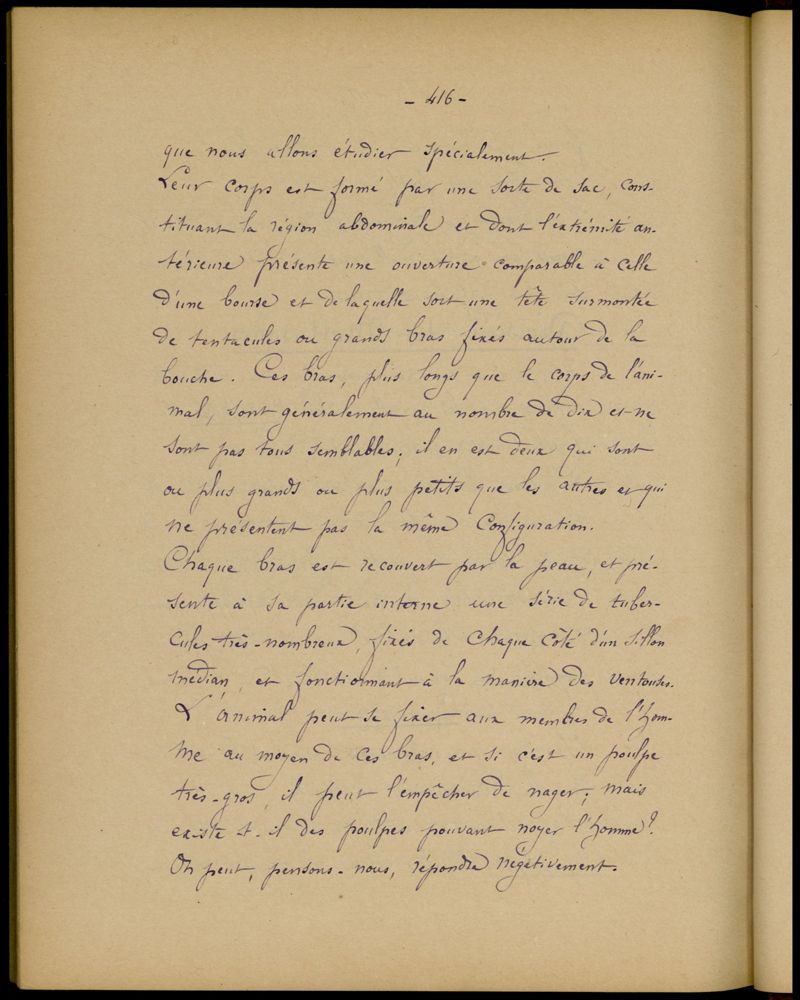 - 416 -
que nous allons étudier spécialement.
Leur corps est formé par une sorte de sac, cons-
tituant la région abdominale et dont l'extrémité an-
térieure présente une ouverture comparable à celle
d'une bourse et de laquelle sort une tête surmontée
de tentacules ou grands bras fixés autour de la
bouche. Ces bras, plus longs que le corps de l'ani-
mal, sont généralement au nombre de dix et ne
sont pas tous semblables; il en est deux qui sont
ou plus grands ou plus petits que les autres et qui
ne présentent pas la même configuration.
Chaque bras est recouvert par la peau, et pré-
sente à sa partie interne une série de tuber-
cules très-nombreux, fixés de chaque côté d'un sillon
médian, et fonctionnant à la manière des ventouses.
L'animal peut se fixer aux membres de l'hom-
me au moyen de ces bras, et si c'est un poulpe
très-gros, il peut l'empêcher de nager; mais
existe-t-il des poulpes pouvant noyer l'homme?
On peut, pensons-nous, répondre négativement.